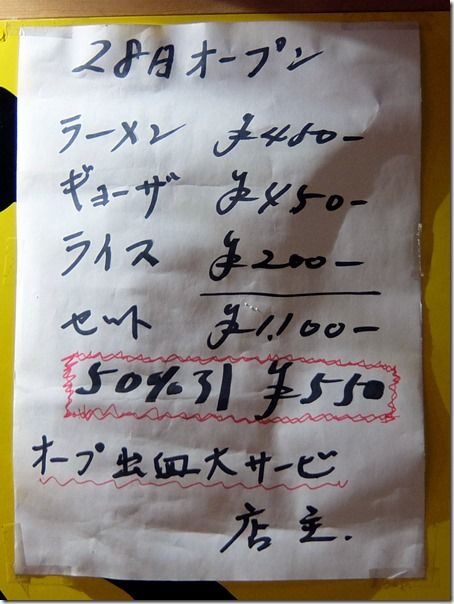 28日オープン
ラーメン ¥450-
ギョーザ ¥450-
ライス ¥200-
セット ¥1,100-
50%引 ¥550
オープ出血大サービ
店主.